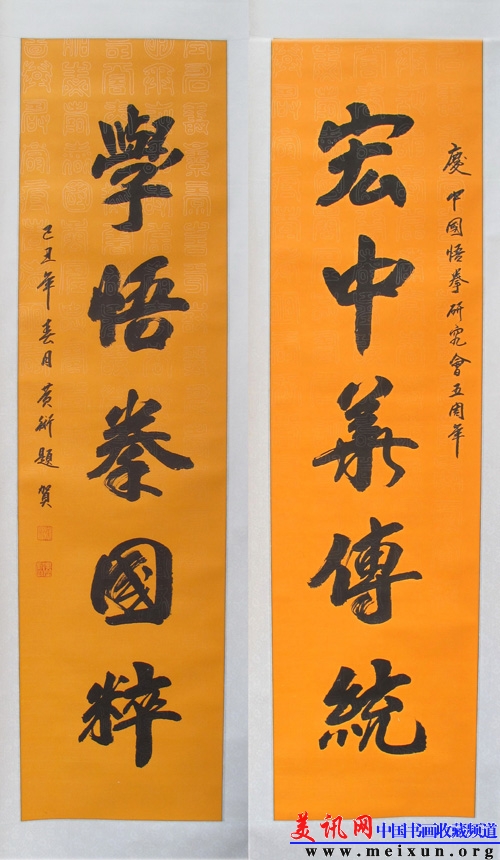 慶中國悟拳研究會五周年
宏中華傳統
學悟拳國粹
己丑年春月黄衍題賀
美讯网 中国书画收藏频道
www.meixun.org